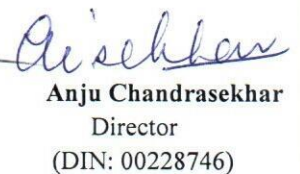 Anju Chandrasekhar
Director
(DIN: 00228746)